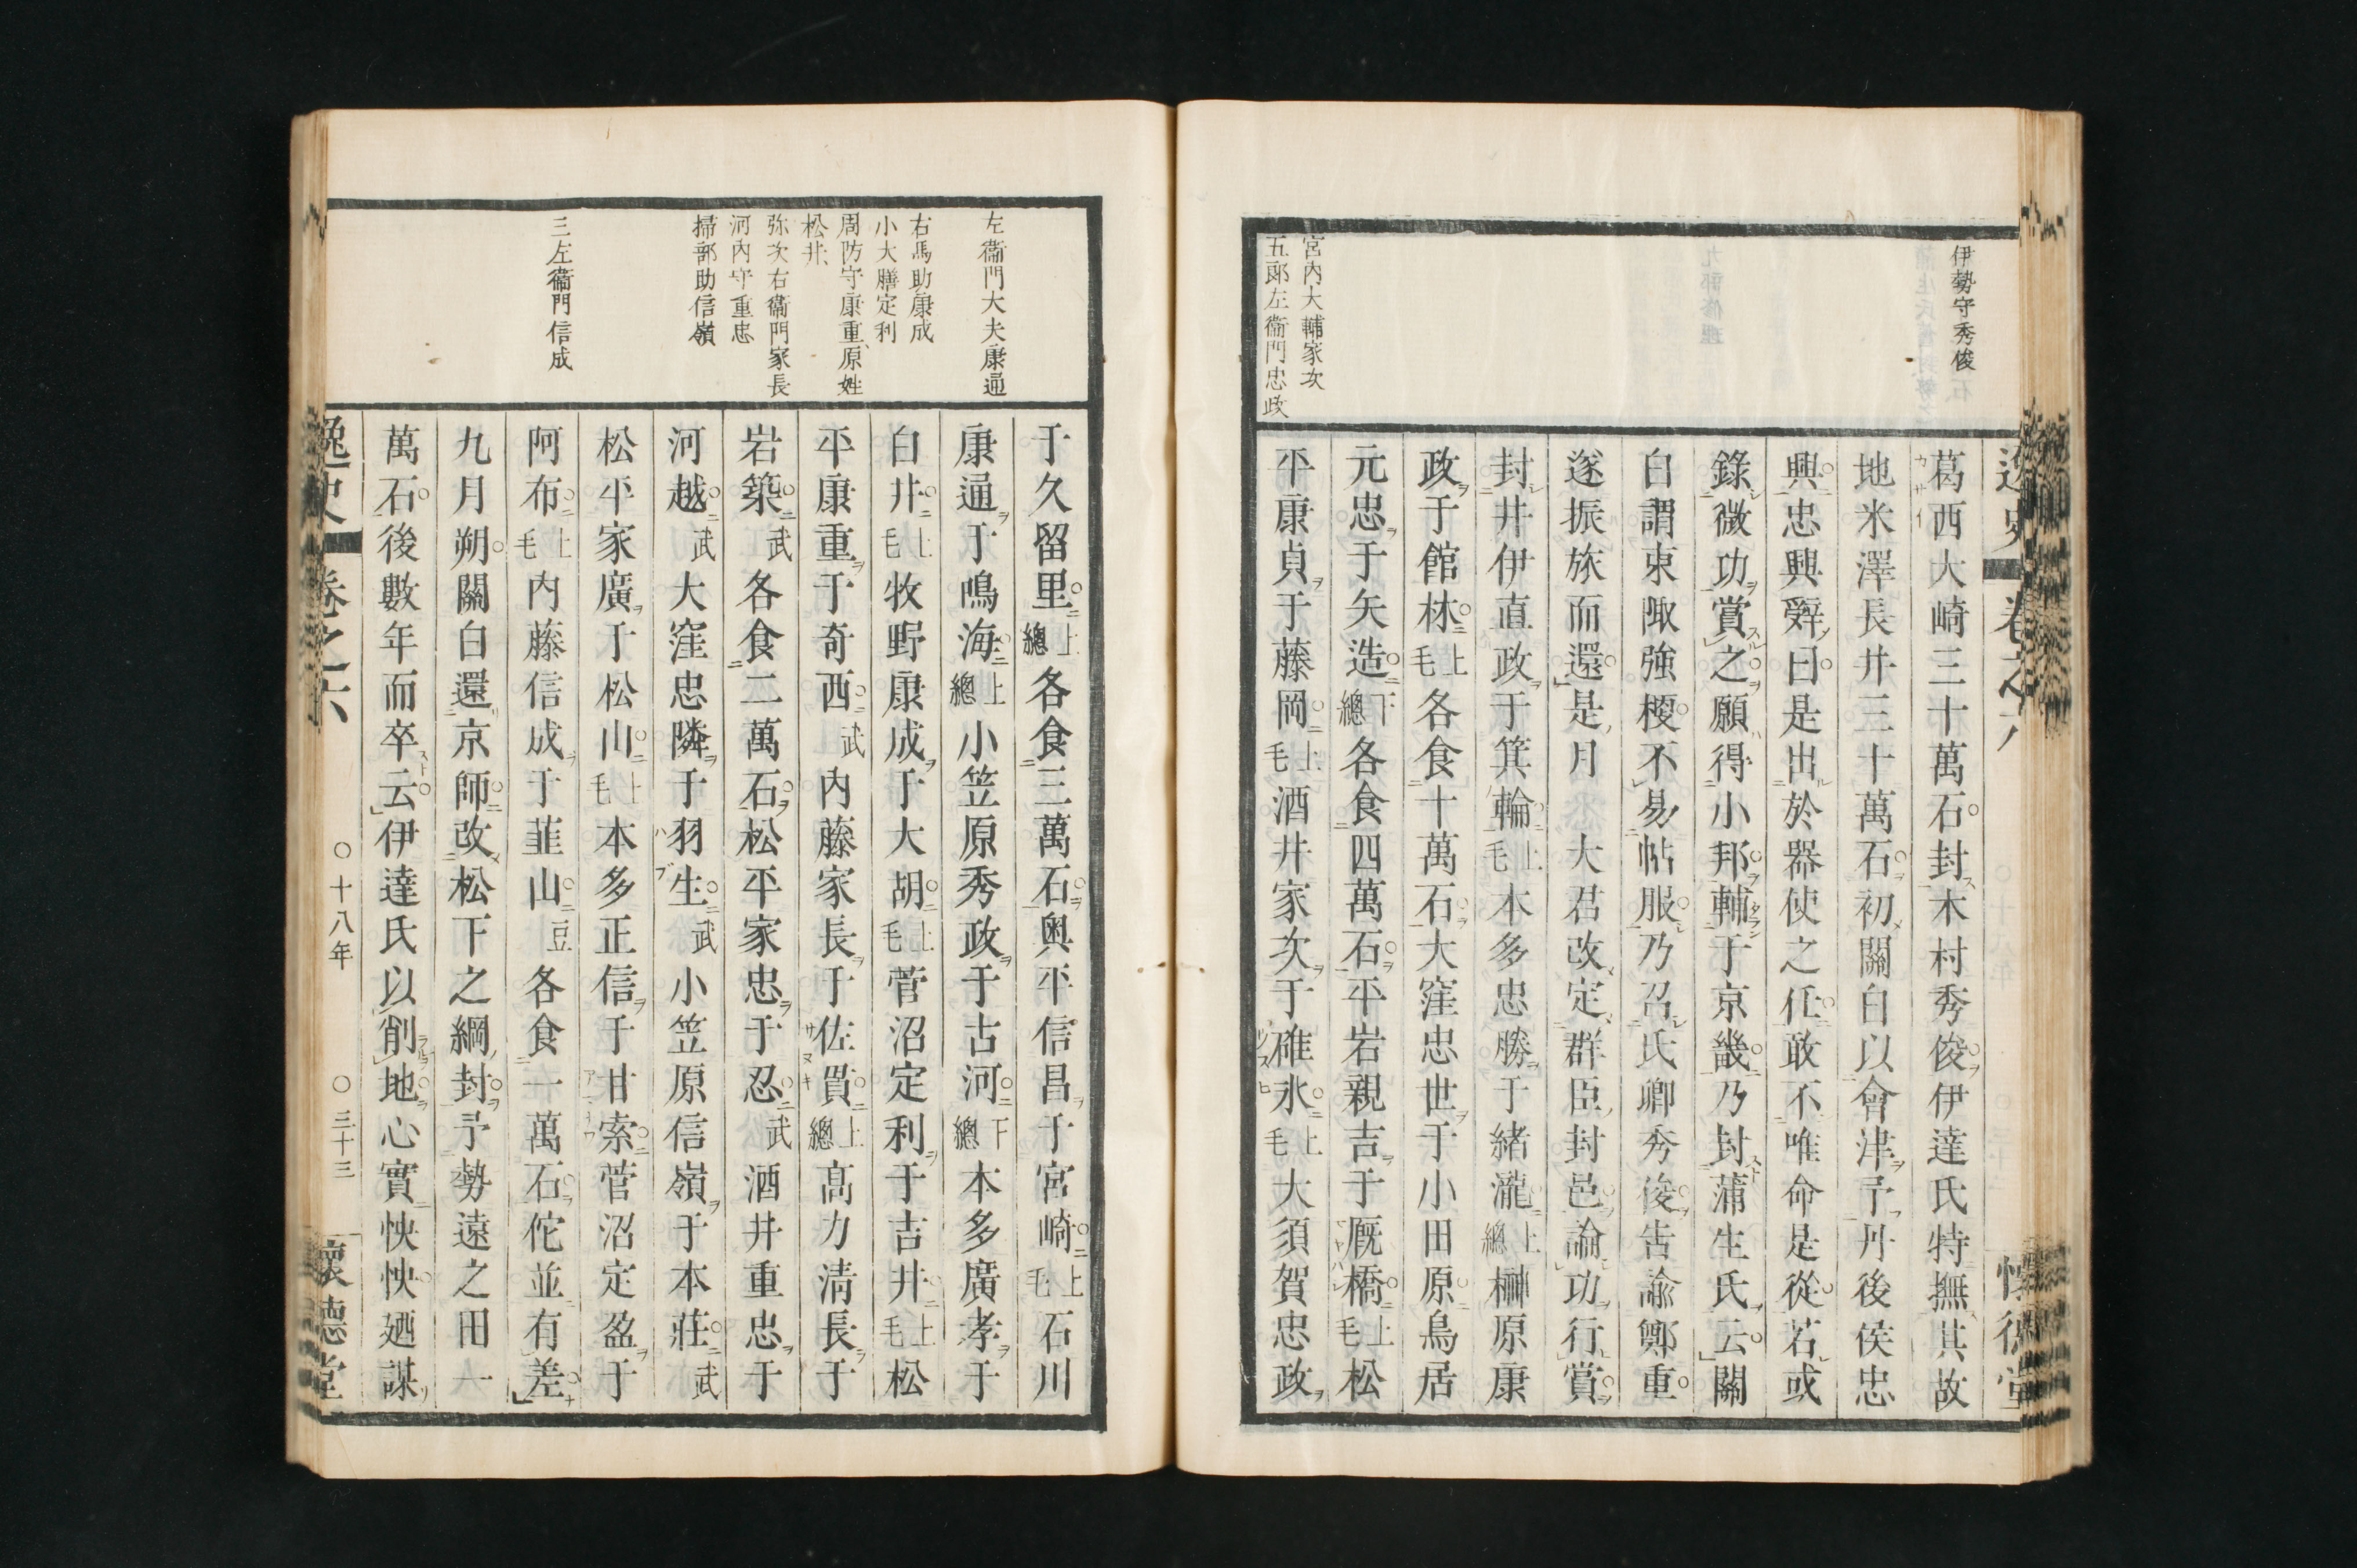 伊勢守秀俊
宮内大輔家次
五郎左衞門忠政
葛西大崎三十萬石封木村秀俊伊達氏特撫其故
地米澤長井三十萬石初關白以會津予丹後侯忠
興忠興辭曰是出於器使之任敢不唯命是從若或
錄微功賞之願得小邦輔于京畿乃封蒲生氏云關
白謂東陬強梗不易帖服乃召氏卿秀俊告諭鄭重
遂振旅而還是月 大君改定群臣封邑論功行賞
封井伊直政于箕輪上毛本多忠勝于緒瀧上總榊原康
政于館林上毛各食十萬石大窪忠世于小田原鳥居
元忠于矢造下總各食四萬石平岩親吉于厩橋上毛松
平康貞于藤岡上毛酒井家次于碓氷上毛大須賀忠政
左衞門大夫康通
右馬助康成
小大膳定利
周防守康重原姓
松井
弥次右衞門家長
河内守重忠
掃部助信嶺
三左衞門信成
于久留里上總各食三萬石奥平信昌于宮崎上毛石川
康通于鳴海上總小笠原秀政于古河下總本多廣孝于
白井上毛牧野康成于大胡上毛菅沼定利于吉井上毛松
平康重于奇西武内藤家長于佐貫上總高力淸長于
岩築武各食二萬石松平家忠于忍武酒井重忠于
河越武大窪忠隣于羽生武小笠原信嶺于本莊武
松平家廣于松山上毛本多正信于甘索菅沼定盈于
阿布上毛内藤信成于韮山豆各食一萬石佗並有差
九月朔關白還京師改松下之綱封予勢遠之田一
萬石後數年而卒云伊達氏以削地心實怏怏廼謀
逸史 卷之六 〇十八年 〇三十三 懷德堂